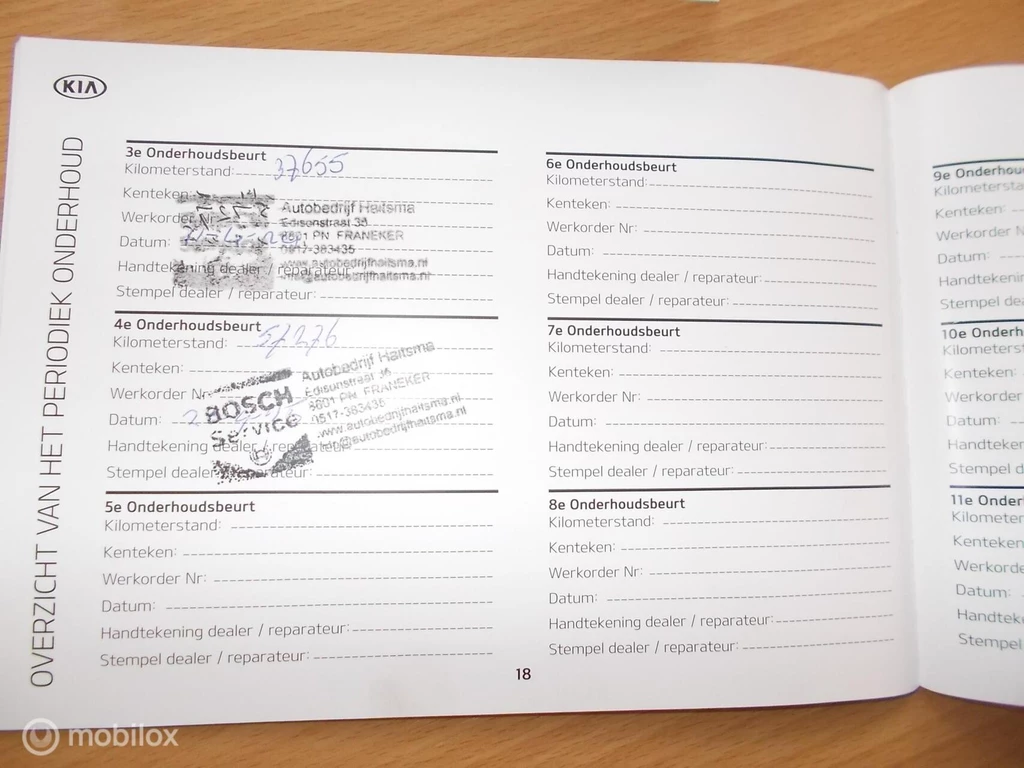 KIA
OVERZICHT VAN HET PERIODIEK ONDERHOUD
3e Onderhoudsbeurt
Kilometerstand: 37655
Kenteken:
Werkorder Nr:
Datum:
Handtekening dealer / reparateur:
Stempel dealer / reparateur:
Autobedrijf Haitsma
Edisonstraat 35
8801 PN FRANEKER
0517-383435
www.autobedrijfhaitsma.nl
4e Onderhoudsbeurt
Kilometerstand: 57276
Kenteken:
Werkorder Nr:
Datum:
Handtekening dealer / reparateur:
Stempel dealer / reparateur:
BOSCH
Service
Autobedrijf Haitsma
Edisonstraat
8601 PN FRANEKER
0517-383435
www.autobedrijfhaitsma.nl
info@autobedrijfhaitsma.nl
5e Onderhoudsbeurt
Kilometerstand:
Kenteken:
Werkorder Nr:
Datum:
Handtekening dealer / reparateur:
Stempel dealer / reparateur:
6e Onderhoudsbeurt
Kilometerstand:
Kenteken:
Werkorder Nr:
Datum:
Handtekening dealer / reparateur:
Stempel dealer / reparateur:
7e Onderhoudsbeurt
Kilometerstand:
Kenteken:
Werkorder Nr:
Datum:
Handtekening dealer / reparateur:
Stempel dealer / reparateur:
8e Onderhoudsbeurt
Kilometerstand:
Kenteken:
Werkorder Nr:
Datum:
Handtekening dealer / reparateur:
Stempel dealer / reparateur:
18
9e Onderhou
Kilometersta
Kenteken:
Werkorder N
Datum:
Handtekenin
Stempel dea
10e Onderh
Kilometerst
Kenteken:
Werkorder
Datum:
Handteken
Stempel d
11e Onder
Kilometer
Kenteken
Werkorde
Datum:
Handtek
Stempel
mobilox